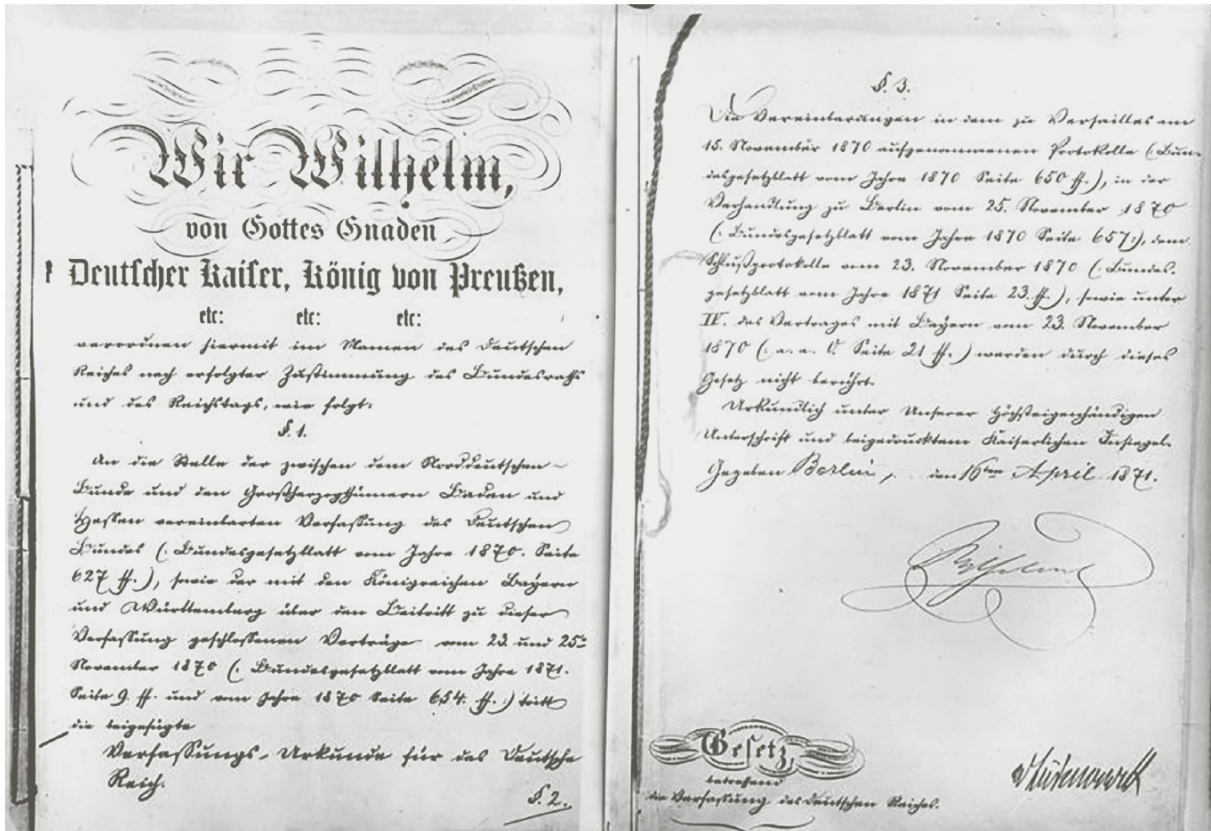 Wir Wilhelm,
von Gottes Gnaden
Deutscher Kaiser, König von Preußen,
etc: etc: etc:
verordnen hiermit im Namen des Deutschen
Reiches nach erfolgter Zustimmung des Bundesraths
und des Reichstags, wie folgt:
§. 1.
An die Stelle der zwischen dem Norddeutschen
Bunde und den Großherzogthümern Baden und
Hessen vereinbarten Verfassung des Deutschen
Bundes (: Bundesgesetzblatt vom Jahre 1870. Seite
627 ff.), sowie der mit den Königreichen Bayern
und Württemberg über den Beitritt zu dieser
Verfassung geschlossenen Verträge vom 23. und 25ten
November 1870 (: Bundesgesetzblatt vom Jahre 1871.
Seite 9. ff. und vom Jahre 1870 Seite 654. ff.:) tritt
die beigefügte
Verfassungs-Urkunde für das Deutsche
Reich.
§. 2.
§. 3.
Die Vereinbarungen in dem zu Versailles am
15. November 1870 aufgenommenen Protokolle (: Bun-
desgesetzblatt vom Jahre 1870 Seite 650 ff.), in der
Verhandlung zu Berlin vom 25. November 1870
(: Bundesgesetzblatt vom Jahre 1870 Seite 657:), dem
Schlußprotokolle vom 23. November 1870 (: Bundes-
gesetzblatt vom Jahre 1871 Seite 23. ff.), sowie unter
IV. des Vertrages mit Bayern vom 23. November
1870 (: a. a. O. Seite 21 ff.) werden durch dieses
Gesetz nicht berührt.
Urkundlich unter Unserer Höchsteigenhändigen
Unterschrift und beigedrucktem Kaiserlichen Insiegel.
Gegeben Berlin, den 16ten April 1871.
Wilhelm
Gesetz,
betreffend
die Verfassung des Deutschen Reiches.